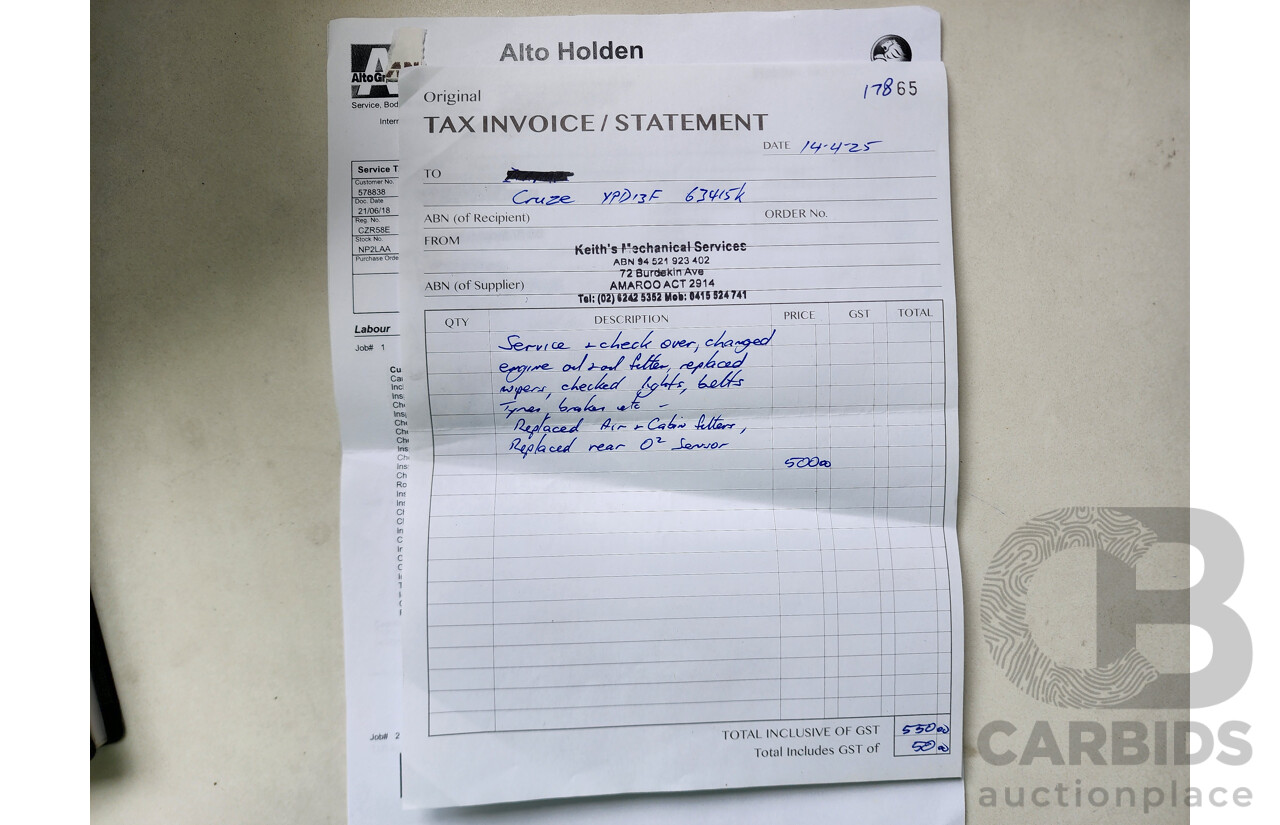 Alto Holden
AltoGr
Service, Bod
Inter
Original
17865
TAX INVOICE / STATEMENT
DATE 14-4-25
TO
Cruze YPD13F 63415k
ABN (of Recipient)
ORDER No.
FROM
Keith's Mechanical Services
ABN 94 521 923 402
72 Burdekin Ave
AMAROO ACT 2914
ABN (of Supplier)
Tel: (02) 6242 5352 Mob: 0415 524 741
QTY DESCRIPTION PRICE GST TOTAL
Service + check over, changed
engine oil + oil filter, replaced
wipers, checked lights, belts
Tyres, brakes etc -
Replaced Air + Cabin filters,
Replaced rear O² Sensor
500 00
TOTAL INCLUSIVE OF GST 550 00
Total Includes GST of 50 00
Service T
Customer No.
578838
Doc. Date
21/06/18
Reg. No.
CZR58E
Stock No.
NP2LAA
Purchase Orde
Labour
Job# 1
Job# 2
CARBIDS
auctionplace